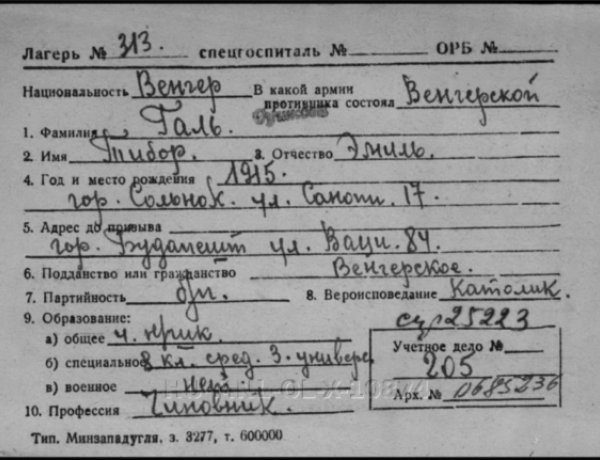 Лагерь № 313. спецгоспиталь № ОРБ №
Национальность Венгер В какой армии противника состоял Венгерской
1. Фамилия Галь.
2. Имя Тибор. 3. Отчество Эмиль.
4. Год и место рождения 1915.
гор. Сольнок. ул. 17.
5. Адрес до призыва
гор. Будапешт ул. Ваци. 84.
6. Подданство или гражданство Венгерское.
7. Партийность б/п. 8. Вероисповедание Католик.
9. Образование:
а) общее
б) специальное 8 кл. сред. 3. универс
в) военное нет
10. Профессия Чиновник.
25223
Учетное дело №
205
Арх. № 0685236
Тип. Минзападугля, з. 3277, т. 600000